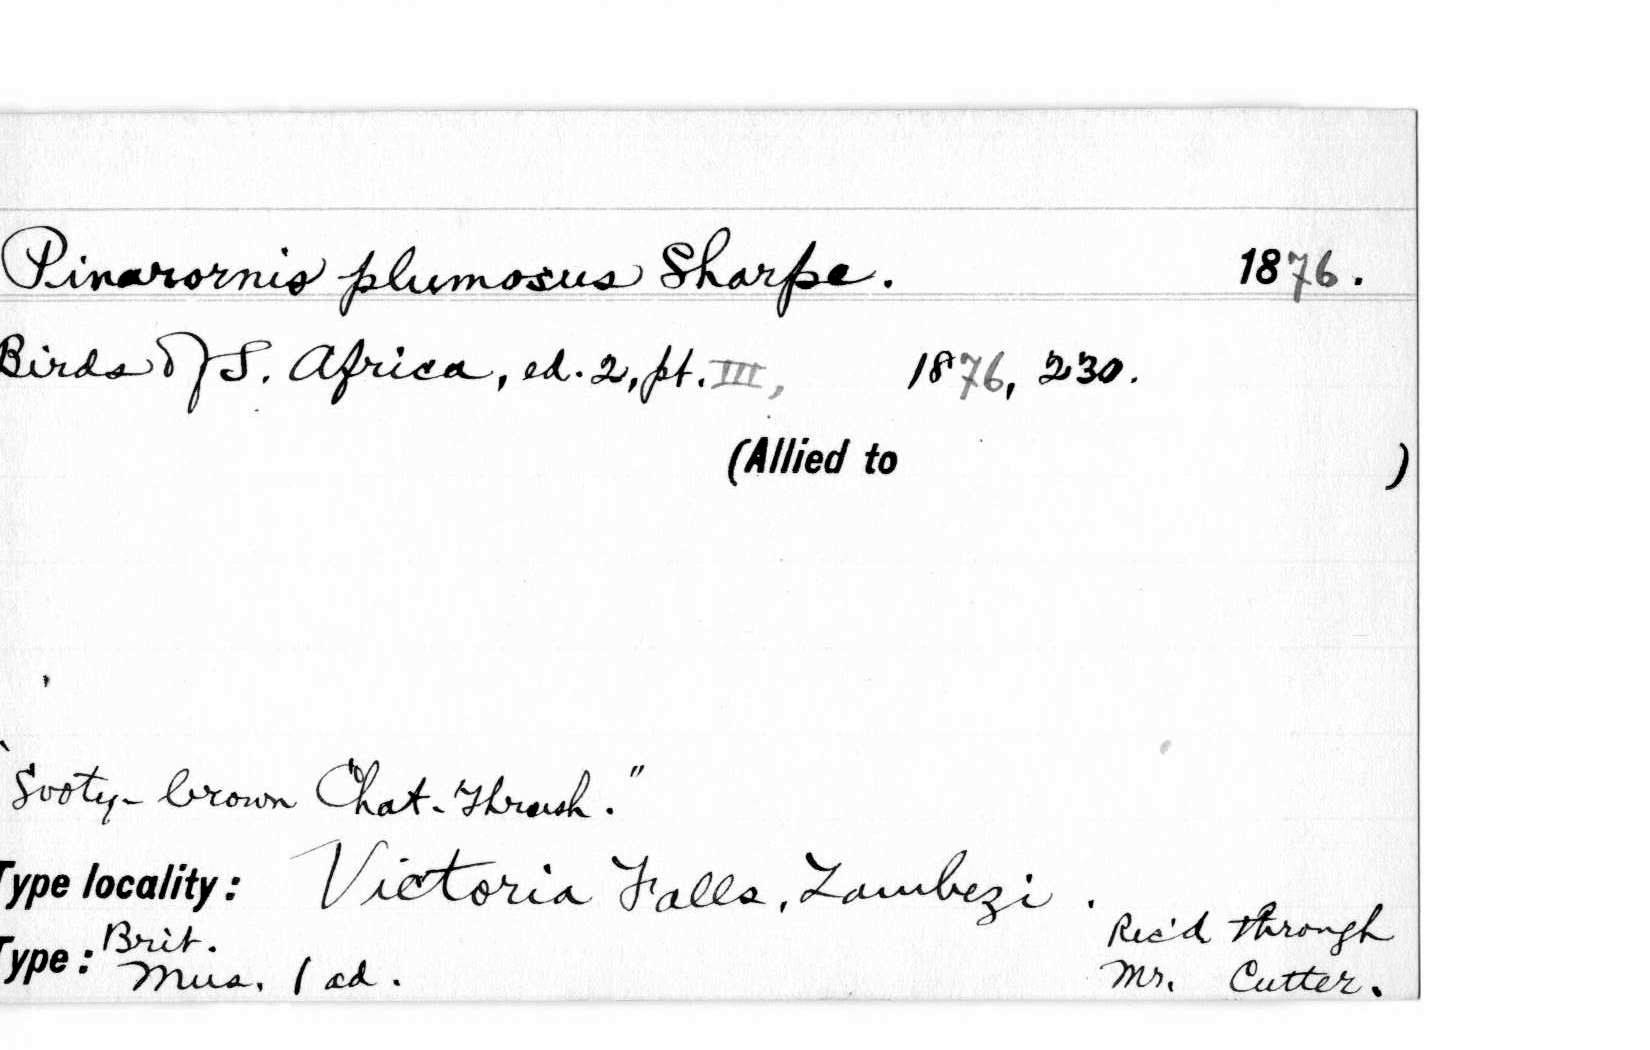 Pinarornis plumosus Sharpe. 1876.
Birds of S. Africa, ed. 2, pt. III, 1876, 230.
(Allied to )
"Sooty-brown Chat-Thrush."
Type locality: Victoria Falls, Zambezi.
Type: Brit. Mus. 1 ad. Rec'd through Mr. Cutter.